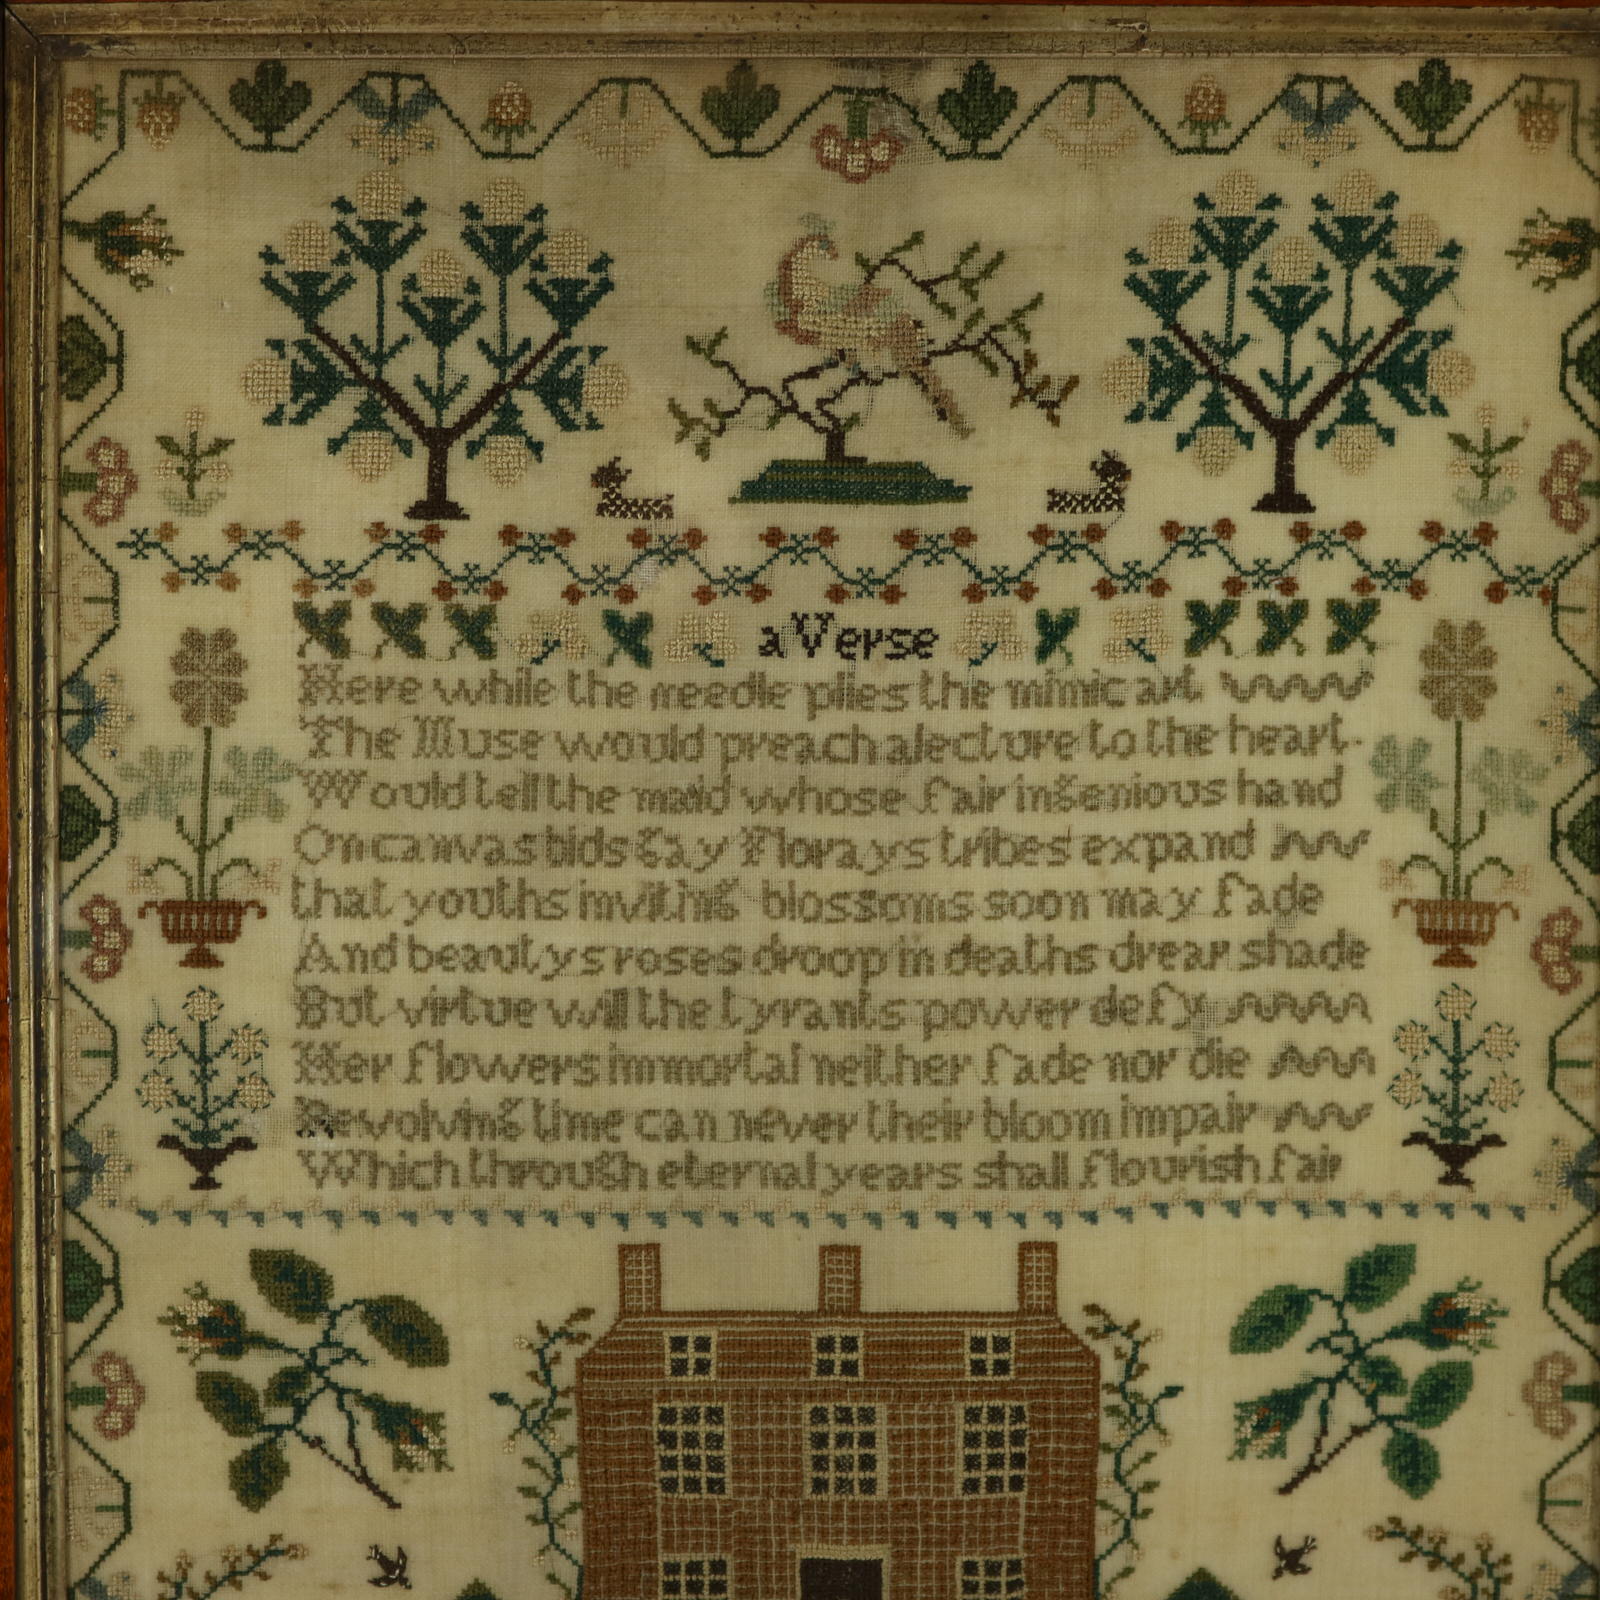 a Verse
Here while the needle plies the mimic art
The Muse would preach a lecture to the heart.
Would tell the maid whose fair ingenious hand
On canvas bids gay Florays tribes expand
that youths inviting blossoms soon may fade
And beautys roses droop in deaths drear shade
But virtue will the tyrants power defy
Her flowers immortal neither fade nor die
Revolving time can never their bloom impair
Which through eternal years shall flourish fair